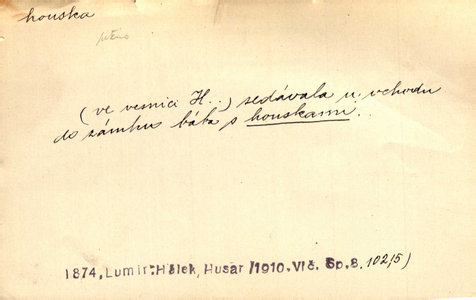 houska
(ve vesnici H..) sedávala u vchodu
do zámku bába s houskami..
1874, Lumír-Hálek, Husar/1910.Vlč. Sp.8. 102,5)